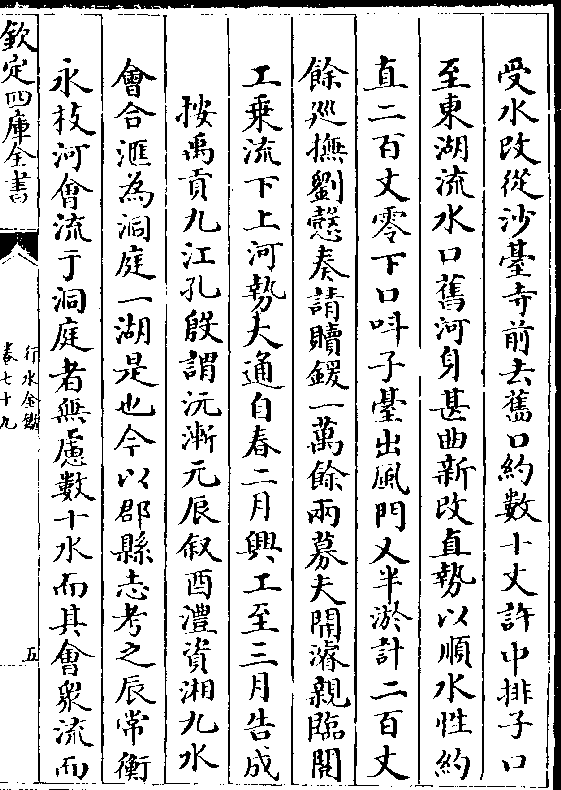 受水改從沙臺寺前去舊口約數十丈許中排子口
至東湖流水口舊河身甚曲新改直勢以順水性約
直二百丈零下口呌子臺出風門又半淤計二百丈
餘巡撫劉慤奏請贖鍰一萬餘兩募夫開濬親臨開
工乗流下上河勢大通自春二月興工至三月告成
按禹貢九江孔殷謂沅漸元辰叙酉澧資湘九水
會合滙為洞庭一湖是也今以郡縣志考之辰常衡
永枝河會流于洞庭者無慮數十水而其會衆流而
欽定四庫全書
行水金鑑
卷七十九
五